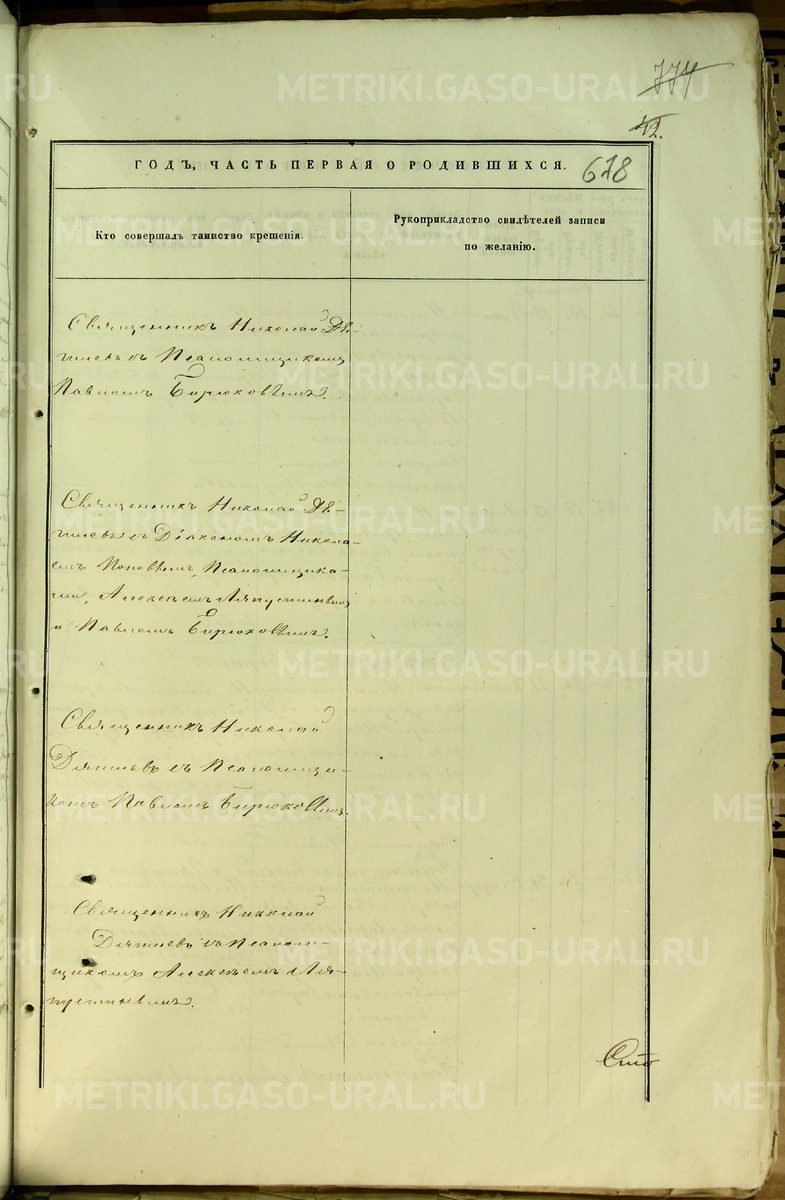 774
42.
678
ГОДЪ, ЧАСТЬ ПЕРВАЯ О РОДИВШИХСЯ.
Кто совершалъ таинство крещенія.
Рукоприкладство свидѣтелей записи
по желанію.
Священникъ Николай Дя-
гилевъ съ Псаломщикомъ
Павломъ Бирюковымъ.
Священникъ Николай Дя-
гилевъ съ Діакономъ Никола-
емъ Поповымъ, Псаломщика-
ми, Алексѣемъ Ляпустинымъ
и Павломъ Бирюковымъ.
Священникъ Николай
Дягилевъ съ Псаломщи-
комъ Павломъ Бирюковымъ.
Священникъ Николай
Дягилевъ съ Псалом-
щикомъ Алексѣемъ Ля-
пустинымъ.
METRIKI.GASO-URAL.RU